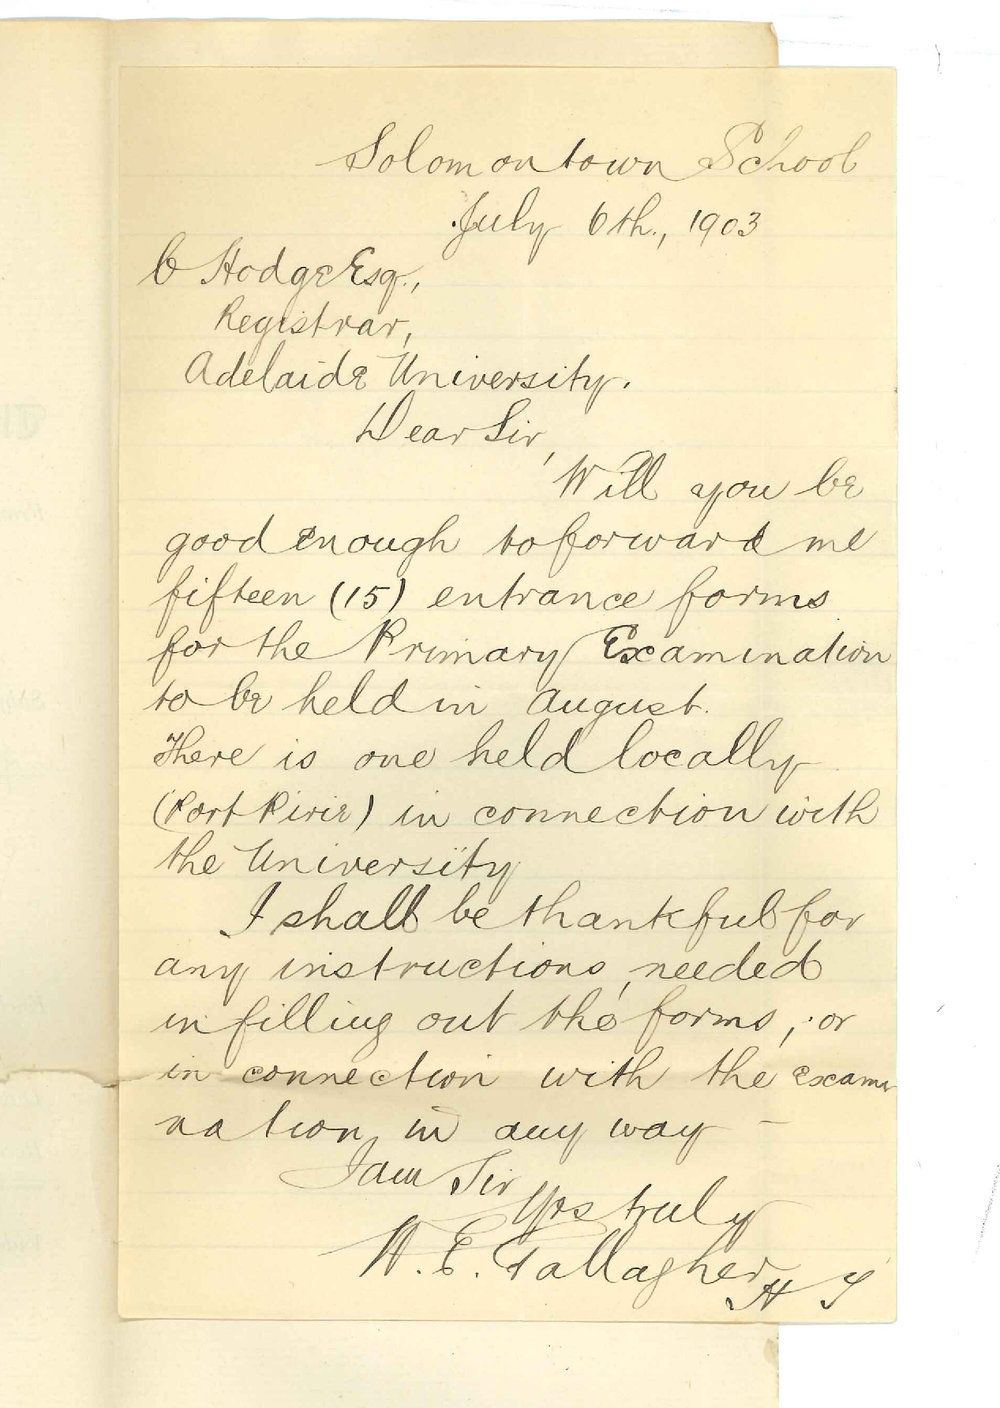 Solomontown School
July 6th., 1903
C Hodge Esq.,
Registrar,
Adelaide University.
Dear Sir,
Will you be
good enough to forward me
fifteen (15) entrance forms
for the Primary Examination
to be held in August.
There is one held locally
(Port Pirie) in connection with
the University
I shall be thankful for
any instructions, needed
in filling out the forms, or
in connection with the exami
nation in any way –
I am Sir
Yrs truly
W. E. Gallagher
H T